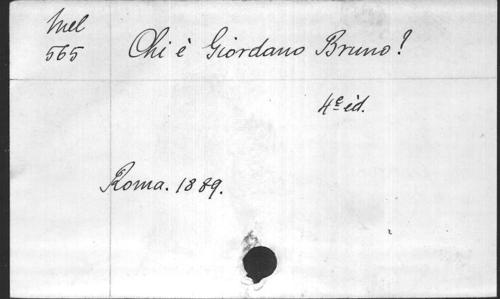 Mel
565
Chi è Giordano Bruno?
4e éd.
Roma. 1889.